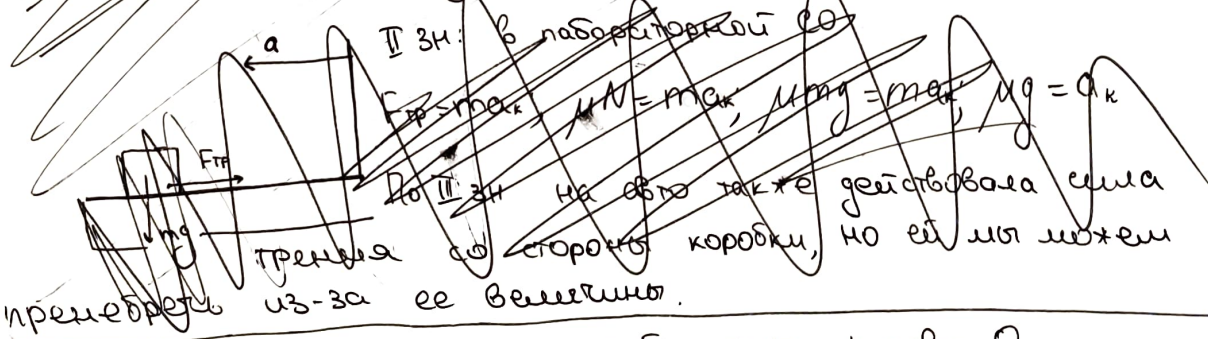 a
II ЗН: в лабораторной СО
Fтр = maк; μN = maк; μmg = maк; μg = aк
Fтр
По II ЗН на авто также действовала сила
mg
трения со стороны коробки, но ей мы можем
пренебречь из-за ее величины.